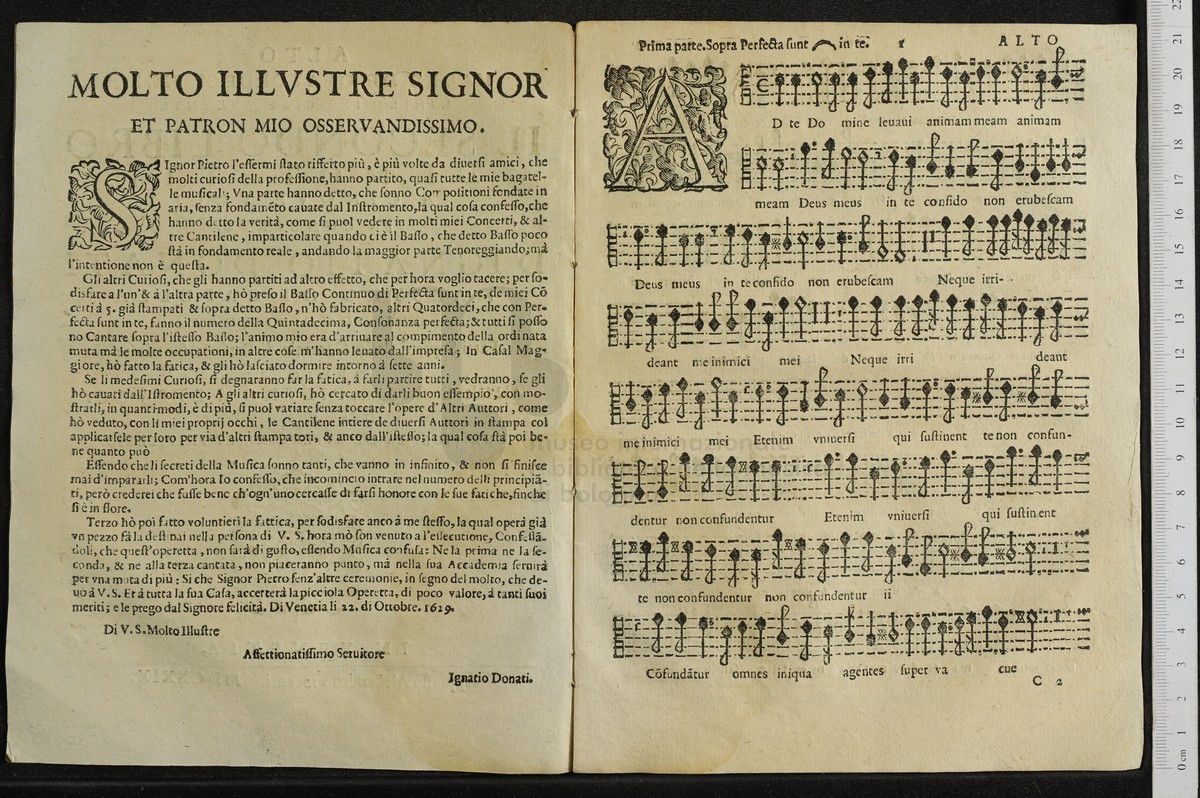 MOLTO ILLVSTRE SIGNOR
ET PATRON MIO OSSERVANDISSIMO.
SIgnor Pietro l'essermi stato rifferto più, è più volte da diuersi amici, che
molti curiosi della professione, hanno partito, quasi tutte le mie bagatel-
le musicali; Vna parte hanno detto, che sonno Compositioni fondate in
aria, senza fondamẽto cauate dal Instromento, la qual cosa confesso, che
hanno detto la verità, come si puol vedere in molti miei Concerti, & al-
tre Cantilene, imparticolare quando ci è il Basso, che detto Basso poco
stà in fondamento reale, andando la maggior parte Tenoreggiando; mà
l'intentione non è questa.
Gli altri Curiosi, che gli hanno partiti ad altro effetto, che per hora voglio tacere; per so-
disfare a l'un' & à l'altra parte, hò preso il Basso Continuo di Perfecta sunt in te, de miei Cõ
certi à 5. già stampati & sopra detto Basso, n'hò fabricato, altri Quatordeci, che con Per-
fecta sunt in te, fanno il numero della Quintadecima, Consonanza perfecta; & tutti si posso
no Cantare sopra l'istesso Basso; l'animo mio era d'arriuare al compimento della ordinata
muta mà le molte occupationi, in altre cose m'hanno leuato dall'impresa; In Casal Mag-
giore, hò fatto la fatica, & gli hò lasciato dormire intorno à sette anni.
Se li medesimi Curiosi, si degnaranno far la fatica, à farli partire tutti, vedranno, se gli
hò cauati dall'Istromento; A gli altri curiosi, hò cercato di darli buon essempio, con mo-
strarli, in quanti modi, è di più, si puol variare senza toccare l'opere d'Altri Auttori, come
hò veduto, con li miei proprij occhi, le Cantilene intiere de diuersi Auttori in stampa col
applicarsele per loro per via d'altri stampatoti, & anco dall'istesso; la qual cosa stà poi be-
ne quanto può
Essendo che li secreti della Musica sonno tanti, che vanno in infinito, & non si finisce
mai d'impararli; Com'hora Io confesso, che incomincio intrare nel numero delli principiã-
ti, però crederei che fusse bene ch'ogn'uno cercasse di farsi honore con le sue fatiche, finche
si è in flore.
Terzo hò poi fatto voluntieri la fattica, per sodisfare anco à me stesso, la qual operà già
vn pezzo fà la destinai nella persona di V. S. hora mò son venuto a l'essecutione, Confessã-
doli, che quest'operetta, non sarà di gusto, essendo Musica confusa: Ne la prima ne la se-
conda, & ne alla terza cantata, non piaceranno punto, mà nella sua Accademia seruirà
per vna muta di più: Si che Signor Pietro senz'altre ceremonie, in segno del molto, che de-
uo à V. S. Et à tutta la sua Casa, accetterà la picciola Operetta, di poco valore, à tanti suoi
meriti; e le prego dal Signore felicità. Di Venetia li 22. di Ottobre. 1629.
Di V. S. Molto Illustre
Affettionatissimo Seruitore
Ignatio Donati.
Prima parte. Sopra Perfecta sunt in te. 1 ALTO
AD te Do mine leuaui animam meam animam
meam Deus meus in te confido non erubescam
Deus meus in te confido non erubescam Neque irri-
deant me inimici mei Neque irri deant
me inimici mei Etenim vniuersi qui sustinent te non confun-
dentur non confundentur Etenim vniuersi qui sustinent
te non confundentur non confundentur ii
Cõfundãtur omnes iniqua agentes super va cue
C 2